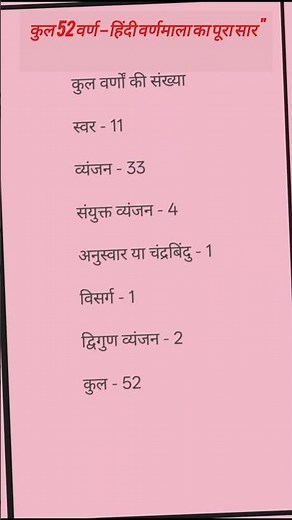 कुल 52 वर्ण – हिंदी वर्णमाला का पूरा सार"
कुल वर्णों की संख्या
स्वर - 11
व्यंजन - 33
संयुक्त व्यंजन - 4
अनुस्वार या चंद्रबिंदु - 1
विसर्ग - 1
द्विगुण व्यंजन - 2
कुल - 52